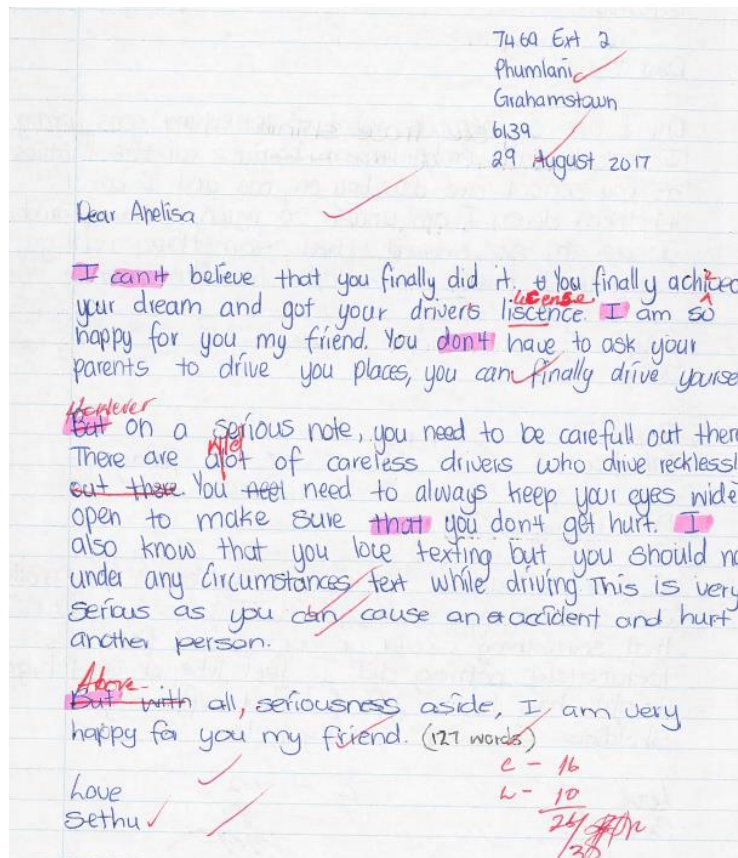 7469 Ext 2
Phumlani
Grahamstown
6139
29 August 2017
Dear Apelisa
I can't believe that you finally did it. You finally achieved
license
your dream and got your drivers liscence. I am so
happy for you my friend. You don't have to ask your
parents to drive you places, you can finally drive yourse
However
But on a serious note, you need to be carefull out there
There are alot of careless drivers who drive recklessl
out there. You need to always keep your eyes wide
open to make sure that you don't get hurt. I
also know that you love texting but you should no
under any circumstances text while driving This is very
serious as you can cause an accident and hurt
another person.
Above
But with all, seriousness aside, I am very
happy for you my friend. (127 words)
Love
Sethu
C - 16
L - 10
26/
30